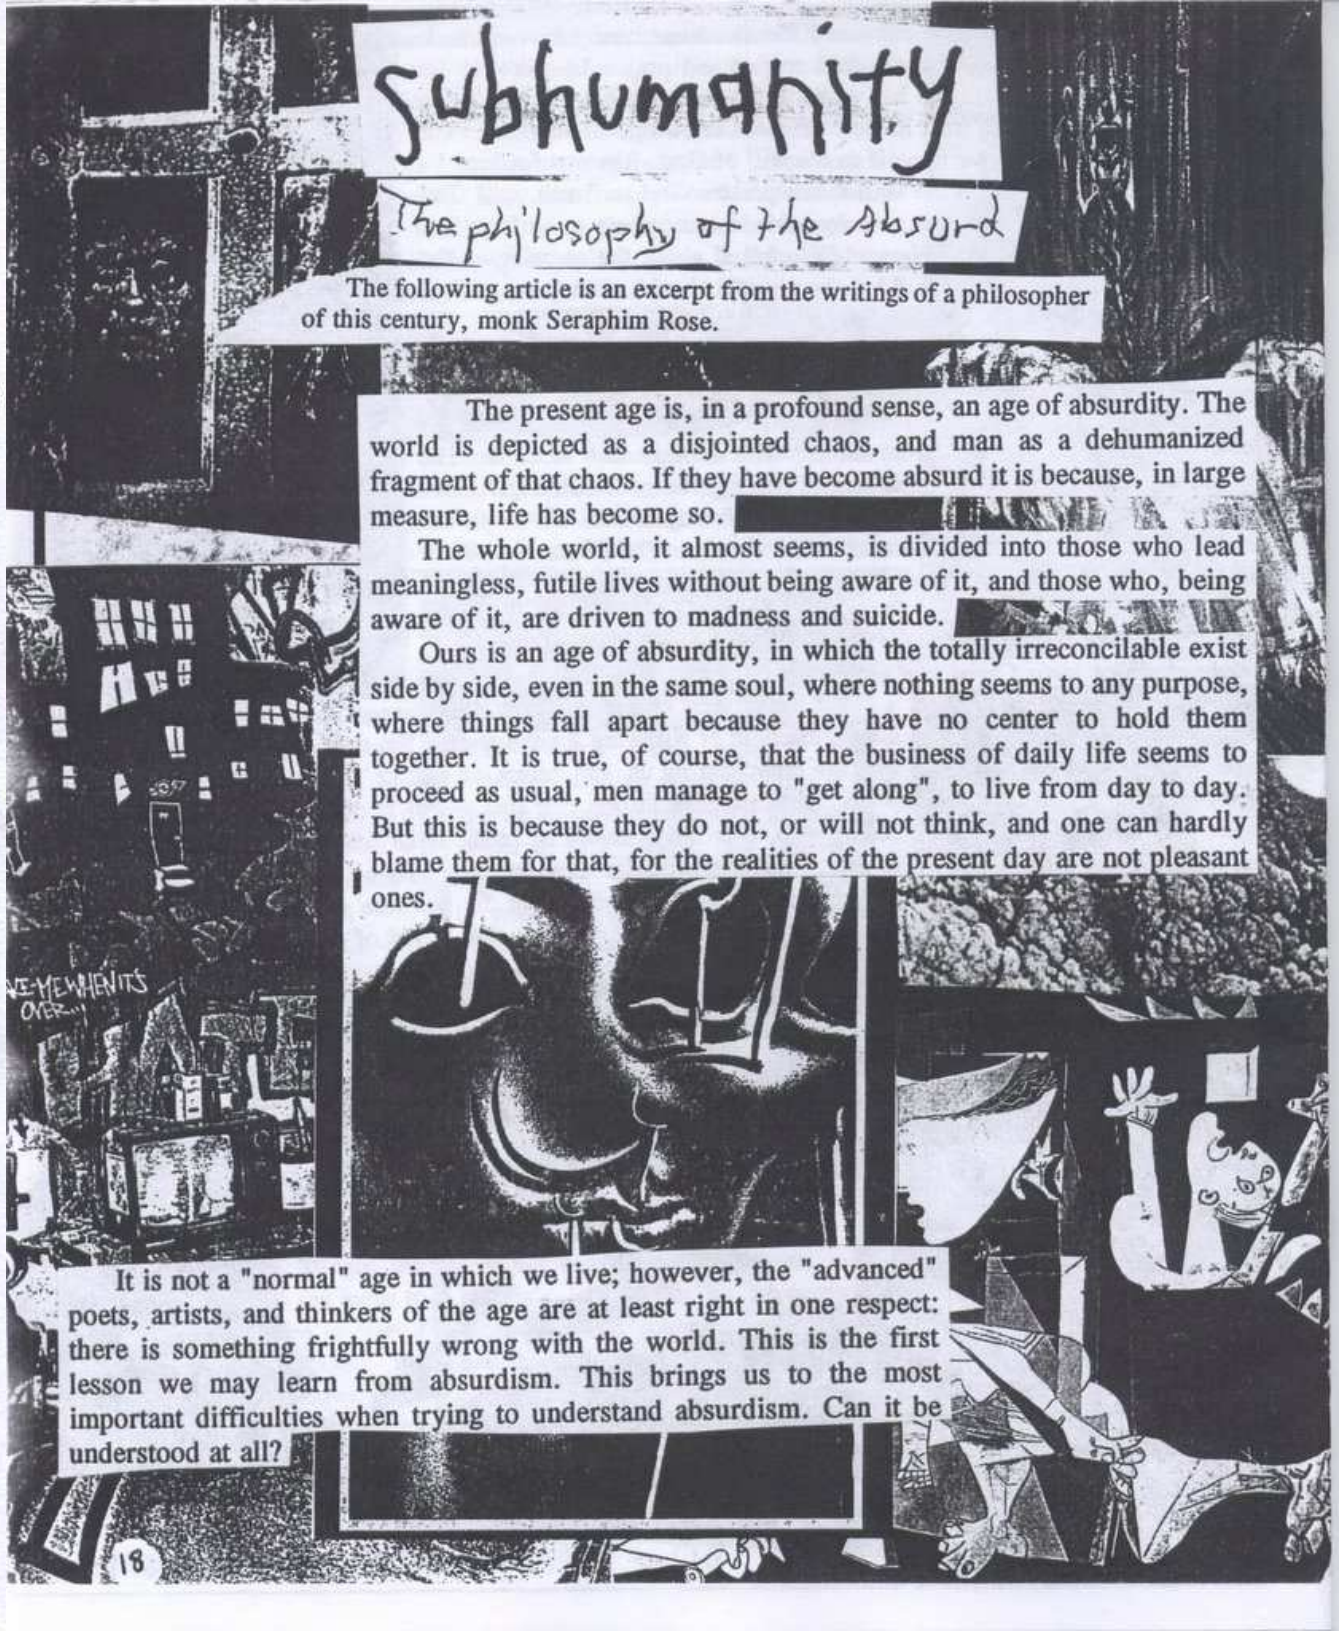 subhumanity
The philosophy of the Absurd
The following article is an excerpt from the writings of a philosopher
of this century, monk Seraphim Rose.
The present age is, in a profound sense, an age of absurdity. The
world is depicted as a disjointed chaos, and man as a dehumanized
fragment of that chaos. If they have become absurd it is because, in large
measure, life has become so.
The whole world, it almost seems, is divided into those who lead
meaningless, futile lives without being aware of it, and those who, being
aware of it, are driven to madness and suicide.
Ours is an age of absurdity, in which the totally irreconcilable exist
side by side, even in the same soul, where nothing seems to any purpose,
where things fall apart because they have no center to hold them
together. It is true, of course, that the business of daily life seems to
proceed as usual, men manage to "get along", to live from day to day.
But this is because they do not, or will not think, and one can hardly
blame them for that, for the realities of the present day are not pleasant
ones.
ME WHEN ITS
OVER...
It is not a "normal" age in which we live; however, the "advanced"
poets, artists, and thinkers of the age are at least right in one respect:
there is something frightfully wrong with the world. This is the first
lesson we may learn from absurdism. This brings us to the most
important difficulties when trying to understand absurdism. Can it be
understood at all?
18